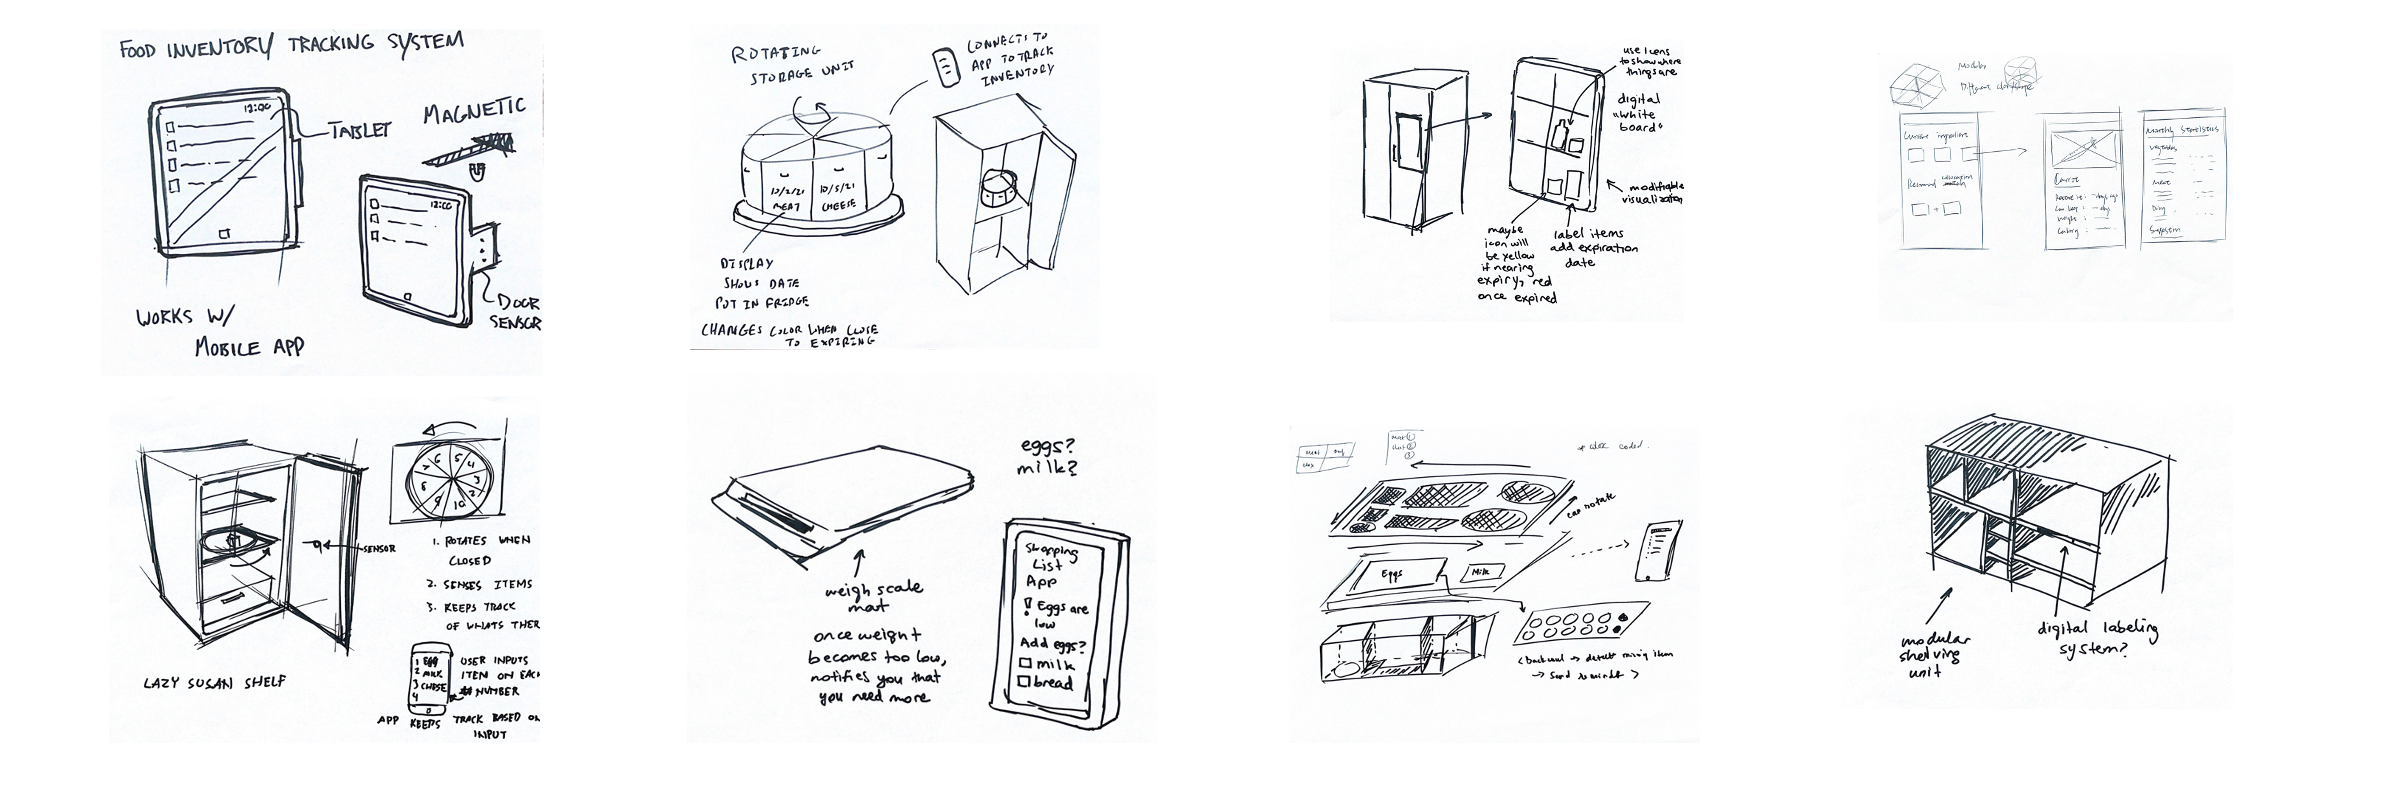 FOOD INVENTORY TRACKING SYSTEM
12:00
TABLET
MAGNETIC
12:00
DOOR
SENSOR
WORKS W/
MOBILE APP
ROTATING
STORAGE UNIT
CONNECTS TO
APP TO TRACK
INVENTORY
10/2/21
MEAT
10/5/21
CHEESE
DISPLAY
SHOWS DATE
PUT IN FRIDGE
CHANGES COLOR WHEN CLOSE
TO EXPIRING
use icons
to show where
things are
digital
"white
board"
modifiable
visualization
maybe
icon will
be yellow
if nearing
expiry, red
once expired
label items
add expiration
date
Modular
Different
Monthly Statistics
Vegetables
Meat
Carrot
Weight:
SENSOR
6 5 4
7 3
8 2
9 10 1
1. ROTATES WHEN
CLOSED
2. SENSES ITEMS
3. KEEPS TRACK
OF WHATS THER
1 EGG
2 MILK
3 CHEESE
4
USER INPUTS
ITEM ON EACH
# NUMBER
LAZY SUSAN SHELF
APP KEEPS TRACK BASED ON
INPUT
eggs?
milk?
weigh scale
mat
once weight
becomes too low,
notifies you that
you need more
Shopping
List
App
! Eggs are
low
Add eggs?
milk
bread
coded.
can rotate
Eggs
Milk
detect missing item
→ Send reminder >
modular
shelving
unit
digital labeling
system?